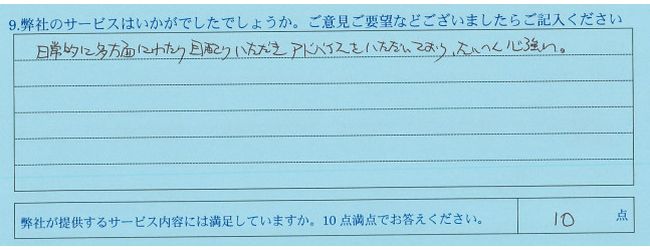 9.弊社のサービスはいかがでしたでしょうか。ご意見ご要望などございましたらご記入ください
日常的に多方面にわたり目配りいただきアドバイスをいただいており、たいへん心強い。
弊社が提供するサービス内容には満足していますか。10点満点でお答えください。 10 点